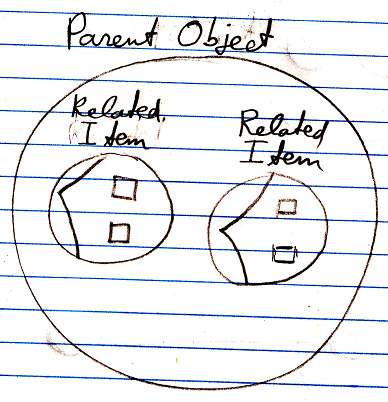 Parent Object
Related
Item
Related
Item